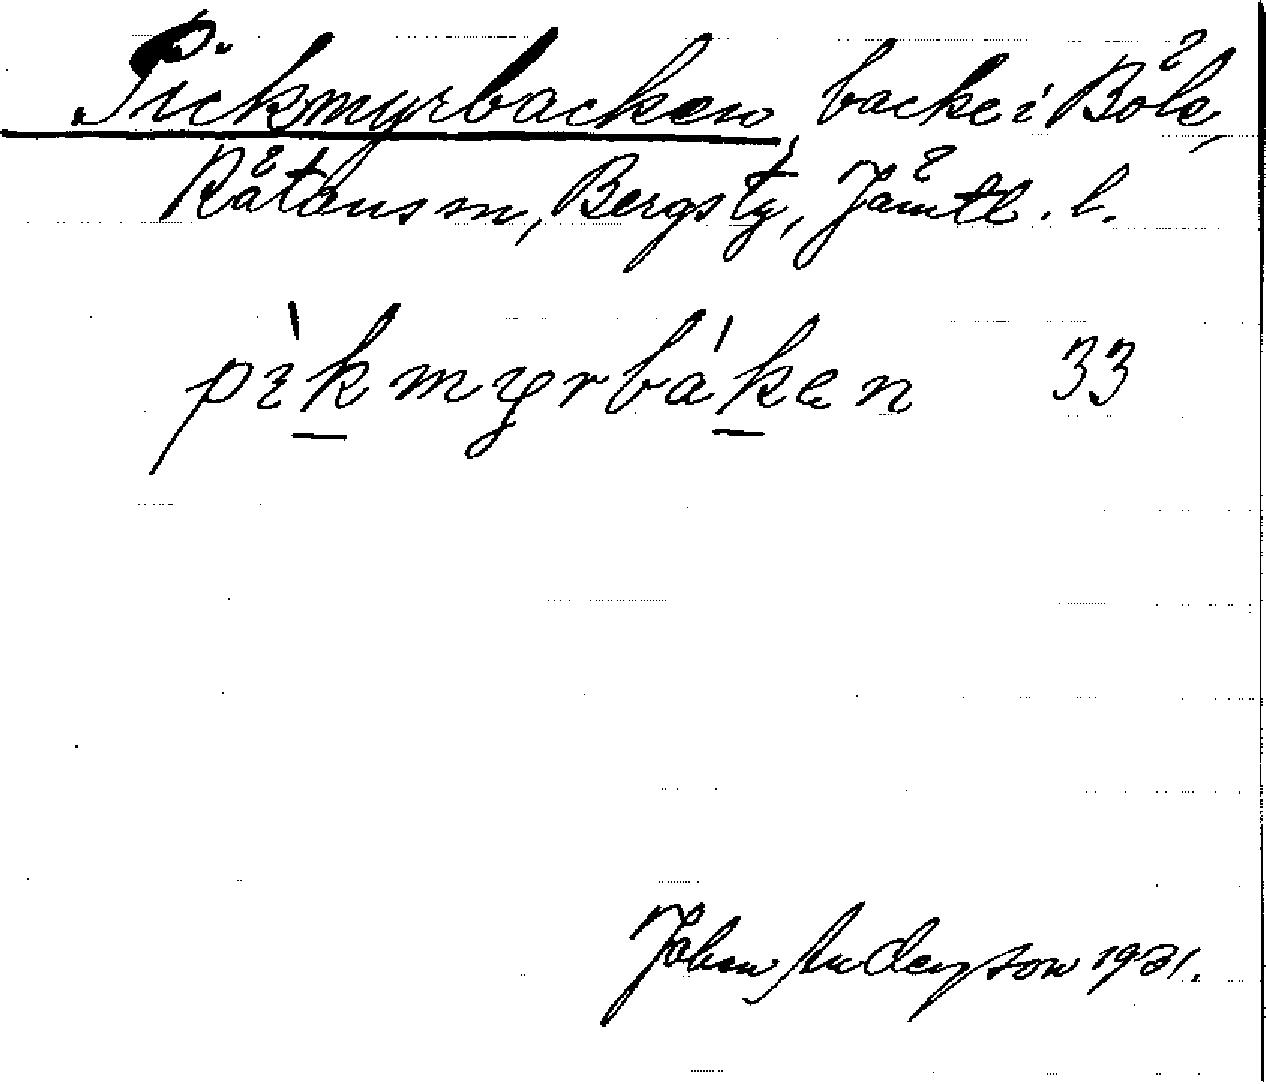 Pickmyrbacken, backe i Böle,
Rätans sn, Bergs tg, Jämtl. l.
pìkmyrbákan 33
John Anderson 1931.